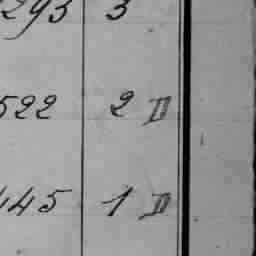 293 3
522 2 II
145 1 II